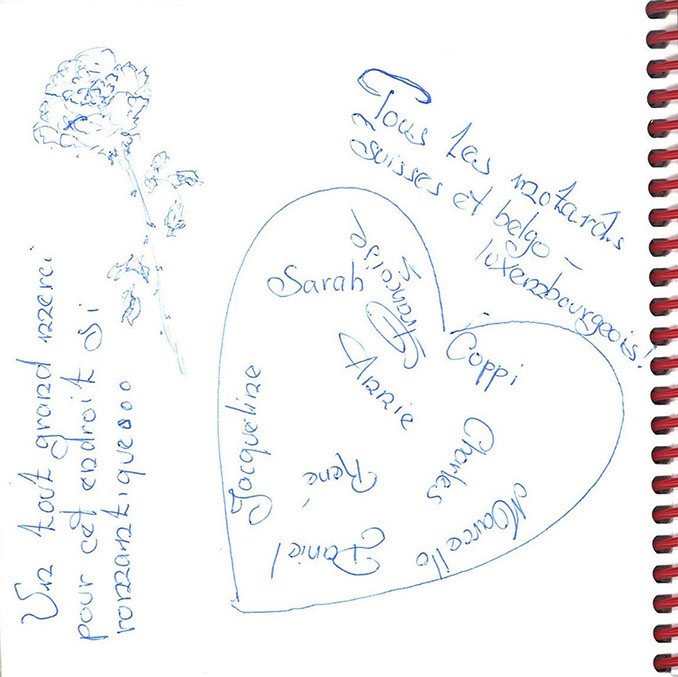 Tous les motards
suisses et belgo-
luxembourgeois!
Sarah
Françoise
Coppi
Annie
Jacqueline
Charles
René
Marcello
Daniel
Un tout grand merci
pour cet endroit si
romantique...